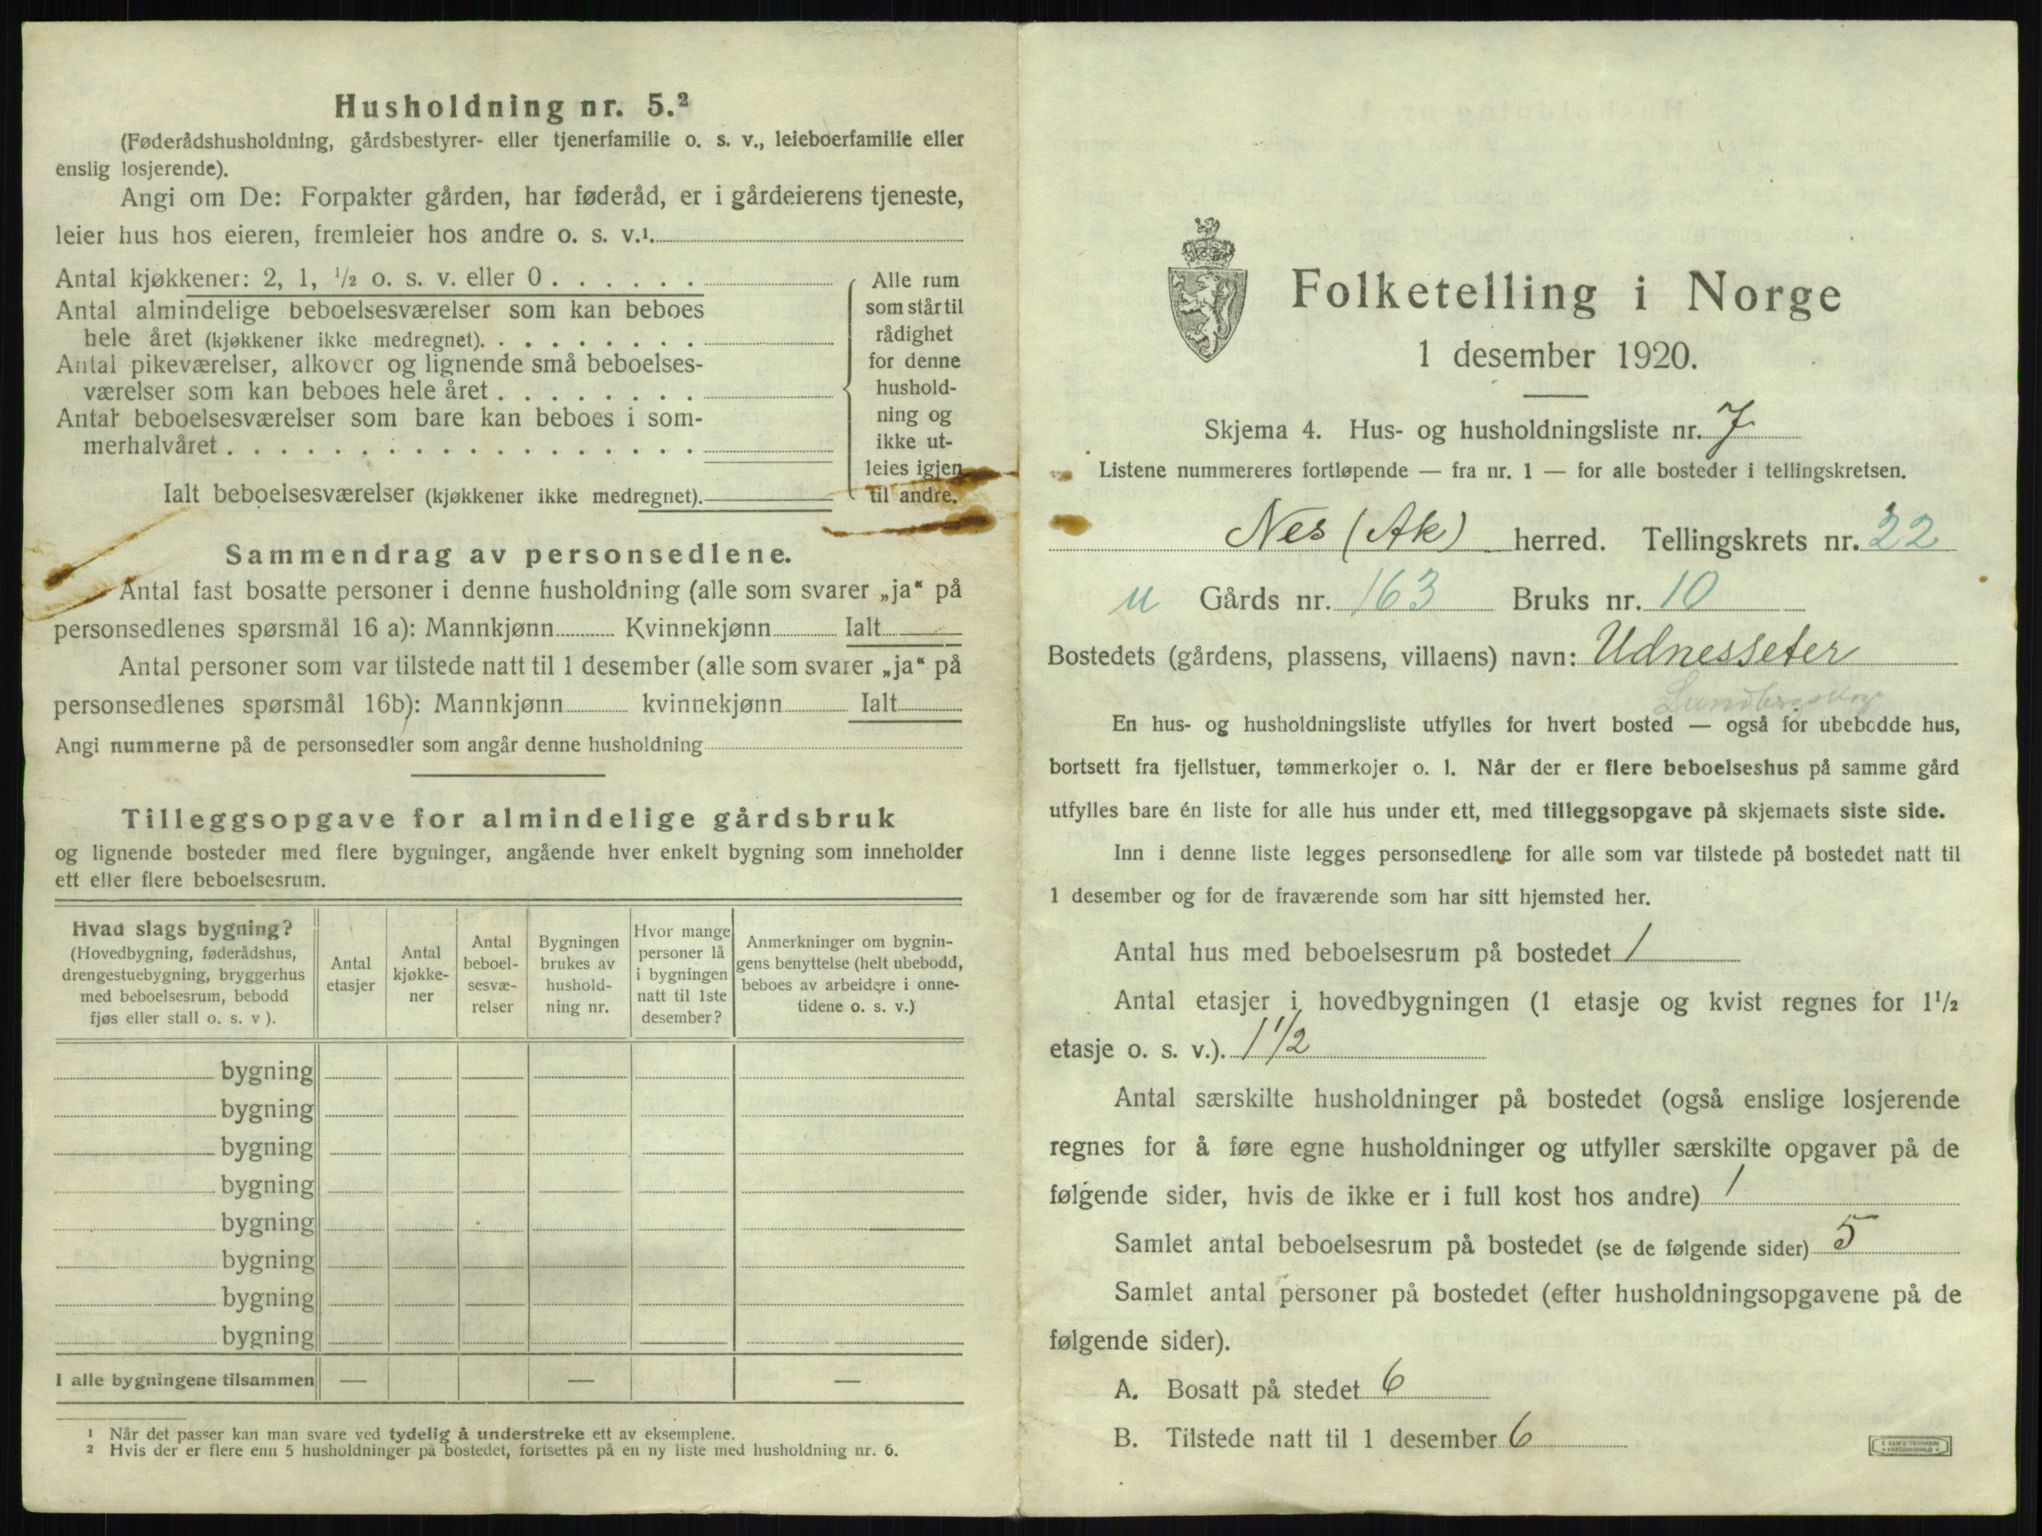 Husholdning nr. 5.²
(Føderådshusholdning, gårdsbestyrer- eller tjenerfamilie o. s. v., leieboerfamilie eller
enslig losjerende).
Angi om De: Forpakter gården, har føderåd, er i gårdeierens tjeneste,
leier hus hos eieren, fremleier hos andre o. s. v.¹.
Antal kjøkkener: 2, 1, ½ o. s. v. eller 0 . . . . . .
Antal almindelige beboelsesværelser som kan beboes
hele året (kjøkkener ikke medregnet). . . . . . . . .
Antal pikeværelser, alkover og lignende små beboelses-
værelser som kan beboes hele året . . . . . . . .
Antal beboelsesværelser som bare kan beboes i som-
merhalvåret . . . . . . . . . . . . . . . . . .
Ialt beboelsesværelser (kjøkkener ikke medregnet).
Alle rum
som står til
rådighet
for denne
hushold-
ning og
ikke ut-
leies igjen
til andre.
Sammendrag av personsedlene.
Antal fast bosatte personer i denne husholdning (alle som svarer „ja“ på
personsedlenes spørsmål 16 a): Mannkjønn Kvinnekjønn Ialt
Antal personer som var tilstede natt til 1 desember (alle som svarer „ja“ på
personsedlenes spørsmål 16b): Mannkjønn kvinnekjønn Ialt
Angi nummerne på de personsedler som angår denne husholdning
Tilleggsopgave for almindelige gårdsbruk
og lignende bosteder med flere bygninger, angående hver enkelt bygning som inneholder
ett eller flere beboelsesrum.
Hvad slags bygning?
(Hovedbygning, føderådshus,
drengestuebygning, bryggerhus
med beboelsesrum, bebodd
fjøs eller stall o. s. v ).
Antal
etasjer
Antal
kjøkke-
ner
Antal
beboel-
sesvæ-
relser
Bygningen
brukes av
hushold-
ning nr.
Hvor mange
personer lå
i bygningen
natt til 1ste
desember?
Anmerkninger om bygnin-
gens benyttelse (helt ubebodd,
beboes av arbeidere i onne-
tidene o. s. v.)
bygning
bygning
bygning
bygning
bygning
bygning
bygning
bygning
I alle bygningene tilsammen — — —
¹ Når det passer kan man svare ved tydelig å understreke ett av eksemplene.
² Hvis der er flere enn 5 husholdninger på bostedet, fortsettes på en ny liste med husholdning nr. 6.
Folketelling i Norge
1 desember 1920.
Skjema 4. Hus- og husholdningsliste nr. 7
Listene nummereres fortløpende — fra nr. 1 — for alle bosteder i tellingskretsen.
Nes (Ak) herred. Tellingskrets nr. 22
u Gårds nr. 163 Bruks nr. 10
Bostedets (gårdens, plassens, villaens) navn: Udnesseter
En hus- og husholdningsliste utfylles for hvert bosted — også for ubebodde hus,
bortsett fra fjellstuer, tømmerkojer o. l. Når der er flere beboelseshus på samme gård
utfylles bare én liste for alle hus under ett, med tilleggsopgave på skjemaets siste side.
Inn i denne liste legges personsedlene for alle som var tilstede på bostedet natt til
1 desember og for de fraværende som har sitt hjemsted her.
Antal hus med beboelsesrum på bostedet 1
Antal etasjer i hovedbygningen (1 etasje og kvist regnes for 1½
etasje o. s. v.). 1 1/2
Antal særskilte husholdninger på bostedet (også enslige losjerende
regnes for å føre egne husholdninger og utfyller særskilte opgaver på de
følgende sider, hvis de ikke er i full kost hos andre) 1
Samlet antal beboelsesrum på bostedet (se de følgende sider) 5
Samlet antal personer på bostedet (efter husholdningsopgavene på de
følgende sider).
A. Bosatt på stedet 6
B. Tilstede natt til 1 desember 6